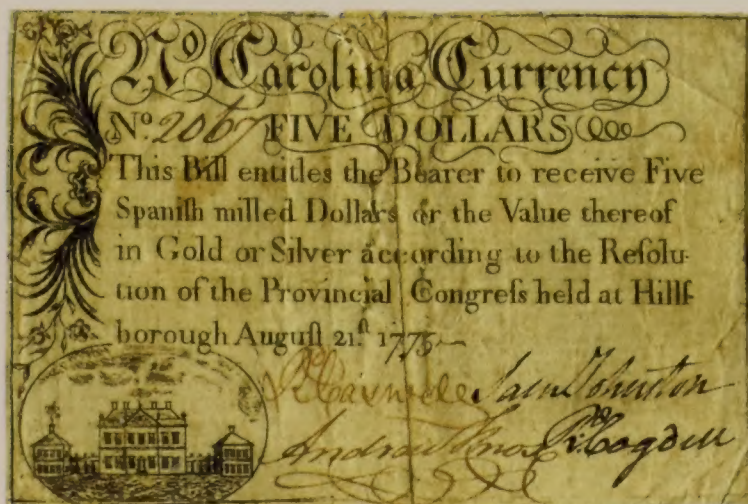 No Carolina Currency
No. 2067 FIVE DOLLARS
This Bill entitles the Bearer to receive Five
Spaniſh milled Dollars or the Value thereof
in Gold or Silver according to the Reſolu-
tion of the Provincial Congreſs held at Hillſ-
borough Auguſt 21ſt 1775
Rd Caswell Sam Johnston
Andrew Knox Rd Cogdell